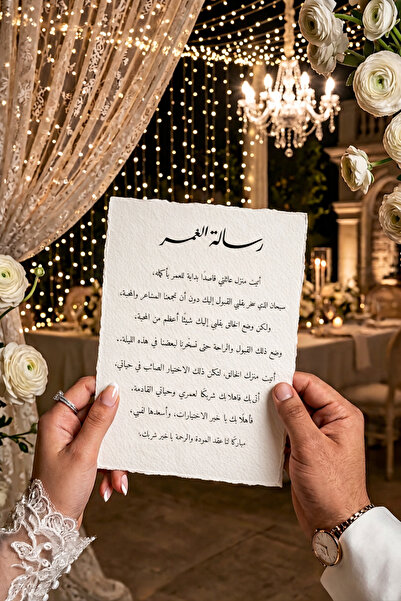 رسالة العمر
أتيت منزل عائلتي قاصدًا بداية للعمر بأكمله،
سبحان الذي سخر بقلبي القبول إليك دون أن تجمعنا المشاعر والمحبة،
ولكن وضع الخالق بقلبي إليك شيئًا أعظم من المحبة.
وضع ذلك القبول والراحة حتى تسخرنا لبعضنا في هذه الليلة..
أتيت منزلك الخالق، لتكن ذلك الاختيار الصائب في حياتي،
أتى بك فاهلا بك شريكًا لعمري وحياتي القادمة.
فأهلًا بك يا خير الاختيارات، وأسعدها لنفسي،
مباركا لنا عقد المودة والرحمة يا خير شريك،